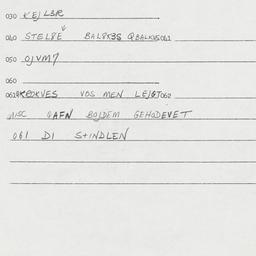 030 KEJLBR
040 STELBE BALBKBS QBALKBS061
050 OJVM7
060
061 KEOKVES VOS MEN LEJGT062
MISC OAFN BOJDEM GEHODEVET
061 DI STINDLEN